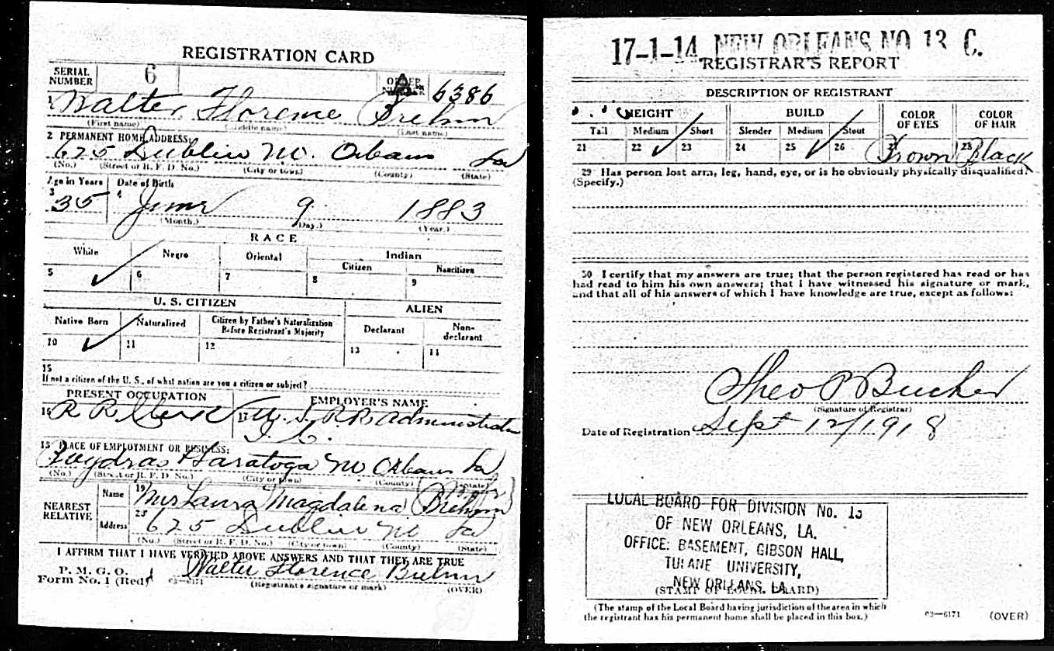 REGISTRATION CARD
SERIAL NUMBER 6 ORDER NUMBER A 6386
1 Walter Florence Brehm
(First name) (Middle name) (Last name)
2 PERMANENT HOME ADDRESS:
625 Dublin N. Orleans La
(No.) (Street or R. F. D. No.) (City or town) (County) (State)
Age in Years Date of Birth
3 35 4 June 9 1883
(Month.) (Day.) (Year.)
RACE
White Negro Oriental Indian
Citizen Noncitizen
5 ✓ 6 7 8 9
U. S. CITIZEN ALIEN
Native Born Naturalized Citizen by Father's Naturalization Before Registrant's Majority Declarant Non-declarant
10 ✓ 11 12 13 14
15
If not a citizen of the U. S., of what nation are you a citizen or subject?
PRESENT OCCUPATION EMPLOYER'S NAME
16 R R Clerk 17 U. S. R R Administration
I. C.
18 PLACE OF EMPLOYMENT OR BUSINESS:
Poydras Saratoga N Orleans La
(No.) (Street or R. F. D. No.) (City or town) (County) (State)
NEAREST RELATIVE Name 19 Mrs Laura Magdalena Brehm
Address 20 625 Dublin N La
(No.) (Street or R. F. D. No.) (City or town) (County) (State)
I AFFIRM THAT I HAVE VERIFIED ABOVE ANSWERS AND THAT THEY ARE TRUE
P. M. G. O.
Form No. 1 (Red) 03—6171 Walter Florence Brehm
(Registrant's signature or mark) (OVER)
17-1-14 NEW ORLEANS NO 13 C.
REGISTRAR'S REPORT
DESCRIPTION OF REGISTRANT
HEIGHT BUILD COLOR OF EYES COLOR OF HAIR
Tall Medium Short Slender Medium Stout
21 22 ✓ 23 24 25 ✓ 26 27 Brown 28 Black
29 Has person lost arm, leg, hand, eye, or is he obviously physically disqualified?
(Specify.)
30 I certify that my answers are true; that the person registered has read or has
had read to him his own answers; that I have witnessed his signature or mark,
and that all of his answers of which I have knowledge are true, except as follows:
Theo P Bucher
(Signature of Registrar)
Date of Registration Sept 12/1918
LOCAL BOARD FOR DIVISION No. 13
OF NEW ORLEANS, LA.
OFFICE: BASEMENT, GIBSON HALL,
TULANE UNIVERSITY,
NEW ORLEANS, LA.
(STAMP OF LOCAL BOARD)
(The stamp of the Local Board having jurisdiction of the area in which
the registrant has his permanent home shall be placed in this box.)
03—6171 (OVER)